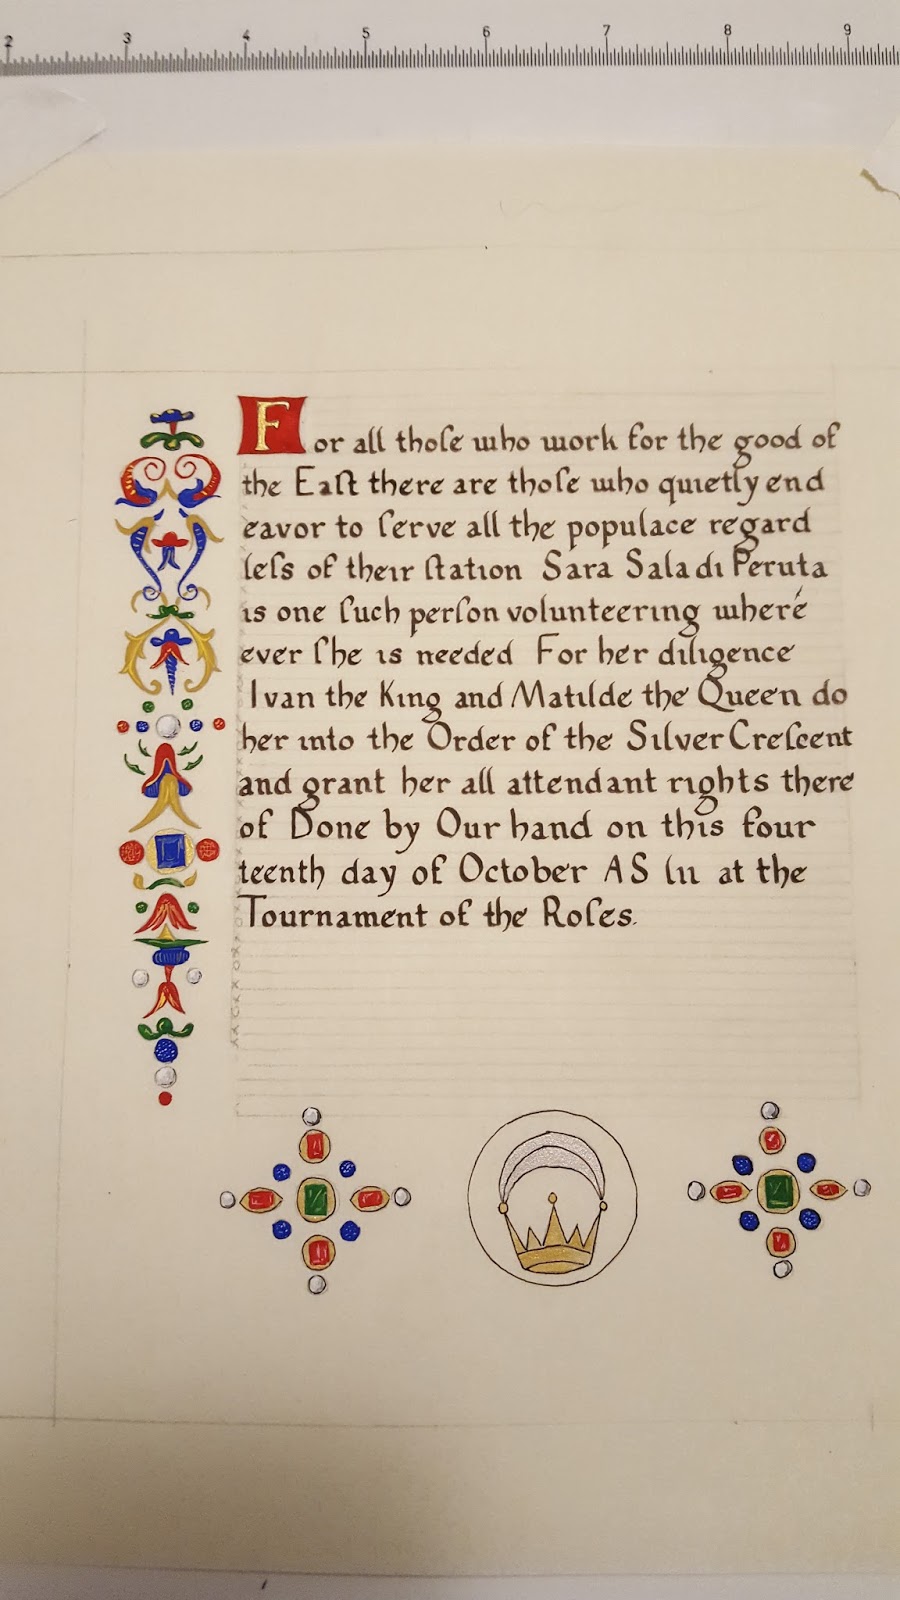 2 3 4 5 6 7 8 9
For all thoſe who work for the good of
the Eaſt there are thoſe who quietly end
eavor to ſerve all the populace regard
leſs of their ſtation Sara Sala di Peruta
is one ſuch perſon volunteering where
ever ſhe is needed For her diligence
Ivan the King and Matilde the Queen do
her into the Order of the Silver Creſcent
and grant her all attendant rights there
of Done by Our hand on this four
teenth day of October AS lii at the
Tournament of the Roſes.